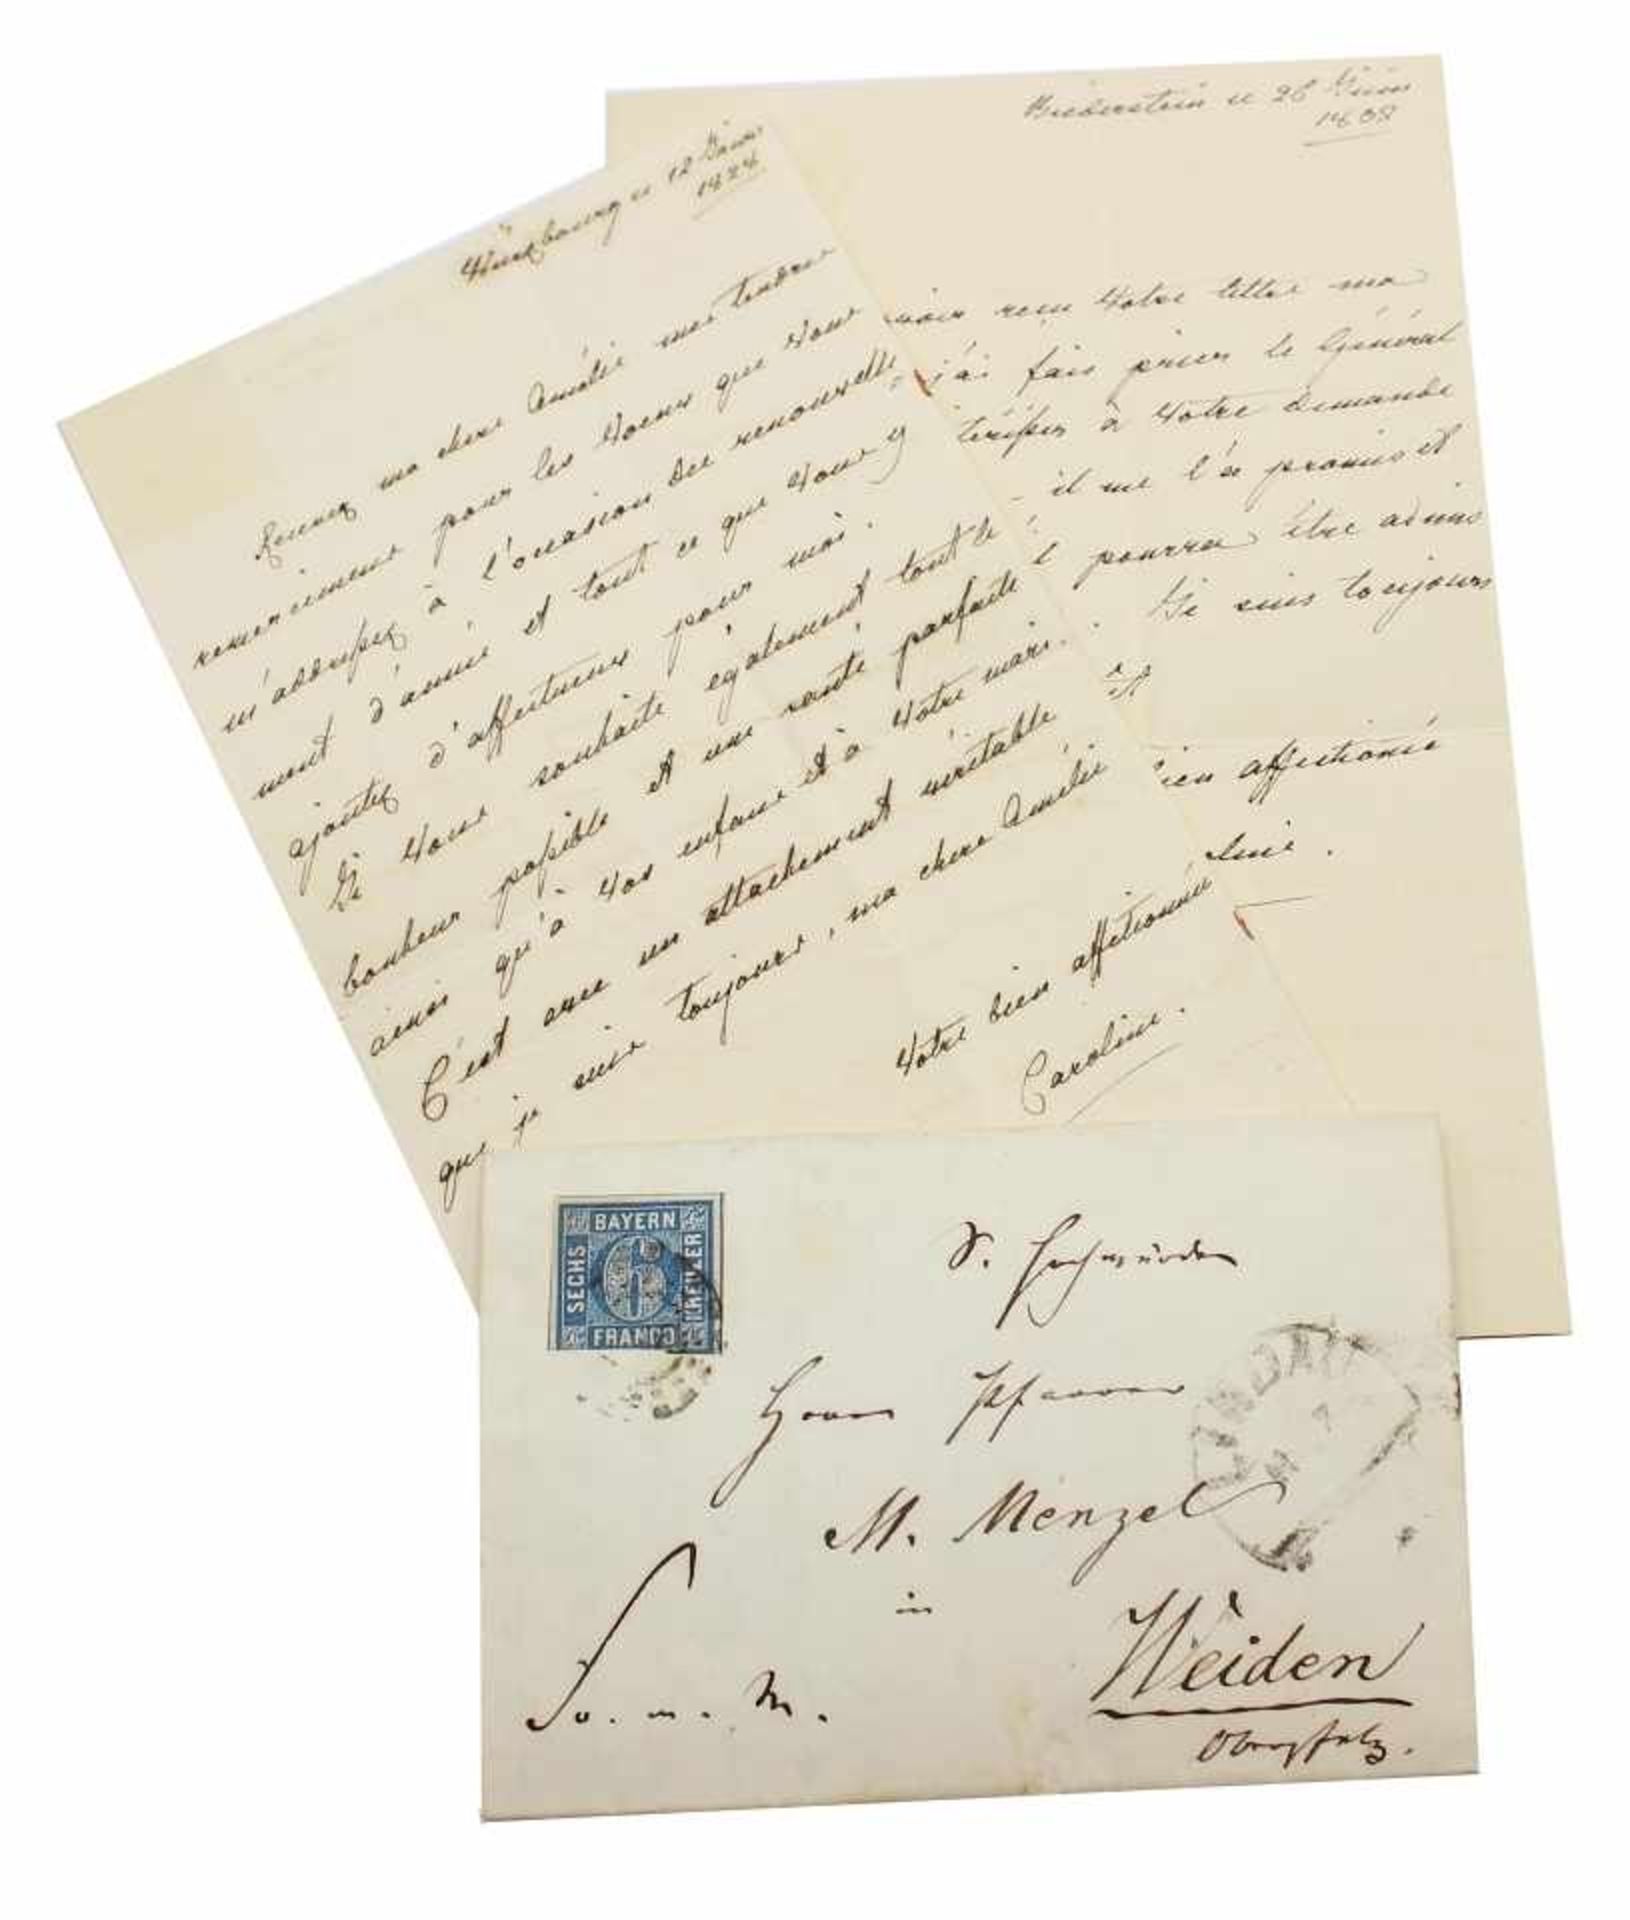 Würzbourg le 12 Janv
1824
Recevez ma chere Amélie mes tendres
remerciemens pour les voeux que vous
m'addressez à l'occasion du renouvelle
ment d'année et tout ce que vous y
ajoutez d'affectueux pour moi.
Je vous souhaite également tout le
bonheur possible et une santé parfaite
ainsi qu'à vos enfans et à votre mari.
C'est avec un attachement véritable
que je suis toujours, ma chere Amélie
Votre bien affectionnée
Caroline.
Biederstein le 26 Juin
avoir reçu votre lettre ma
j'ai fais prier le Général
à votre demande
il me l'a promis et
pourra être admis
Je suis toujours
bien affectionée
BAYERN
SECHS
6
KREUZER
FRANCO
S. Hochwürden
Herrn Pfarrer
M. Menzel
in
Weiden
Oberpfalz.
LANDAU